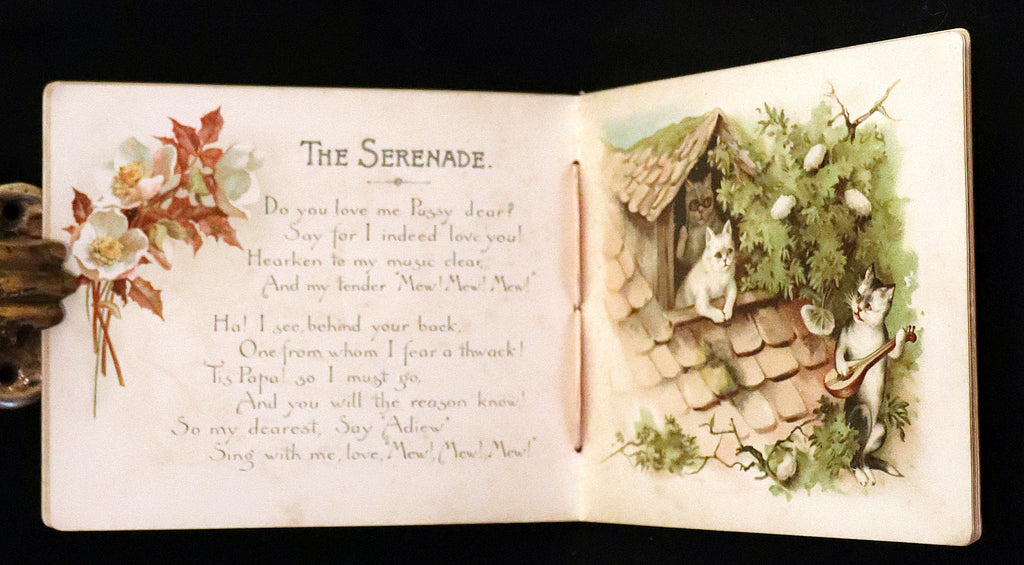 THE SERENADE.
Do you love me Pussy dear?
Say for I indeed love you!
Hearken to my music clear,
And my tender "Mew! Mew! Mew!"
Ha! I see, behind your back,
One from whom I fear a thwack!
Tis Papa! so I must go,
And you will the reason know!
So my dearest, Say "Adiew"
Sing with me, love, "Mew!, Mew!, Mew!"